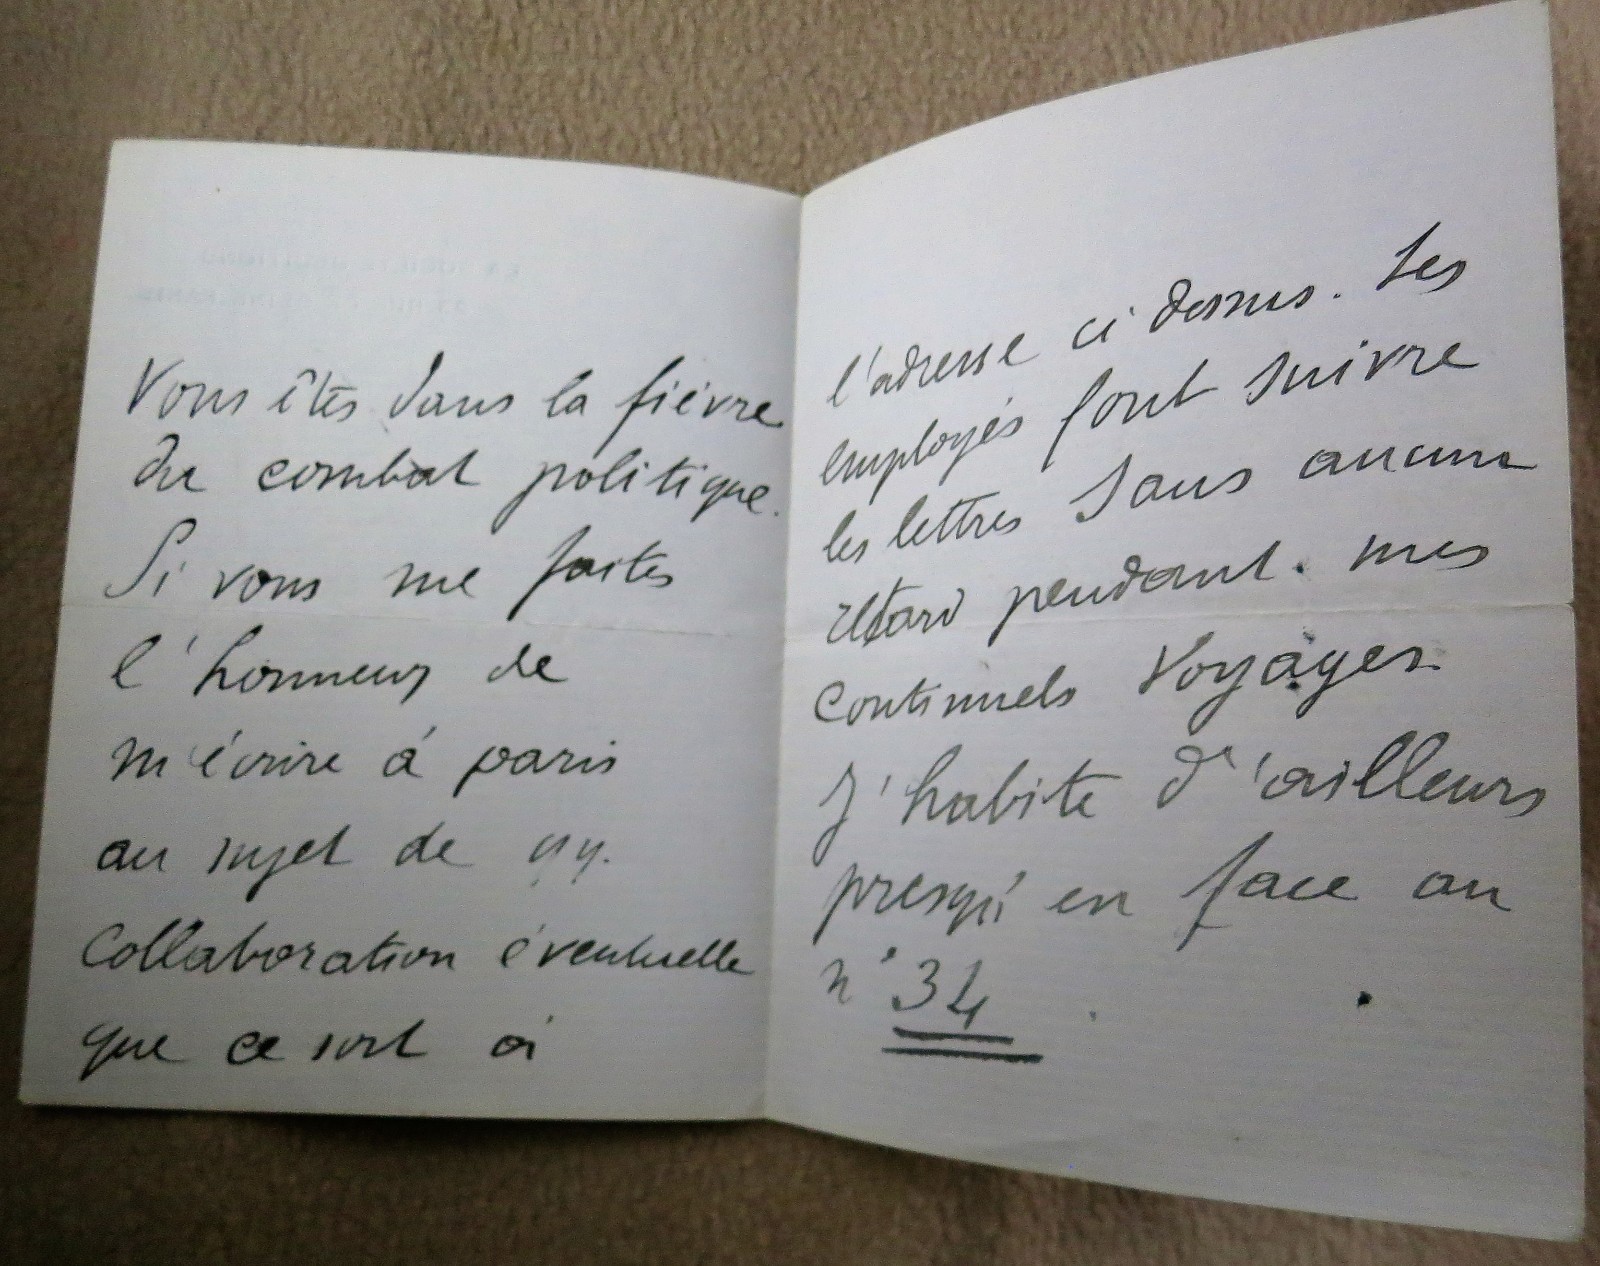 Vous êtes dans la fièvre
du combat politique.
Si vous me faites
l'honneur de
m'écrire à paris
au sujet de qq.
Collaboration éventuelle
que ce soit à
l'adresse ci dessus. Les
employés font suivre
les lettres sans aucun
retard pendant mes
continuels Voyages
J'habite d'ailleurs
presqu' en face au
n° 34